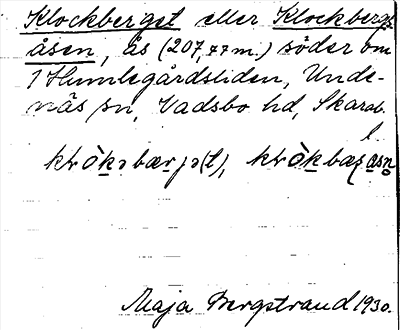 Klockberget eller Klockbergs-
åsen, ås (207,77 m.) söder om
1 Humlegårdsliden, Unde-
näs sn, Vadsbo hd, Skarab.
l.
Maja Bergstrand 1930.